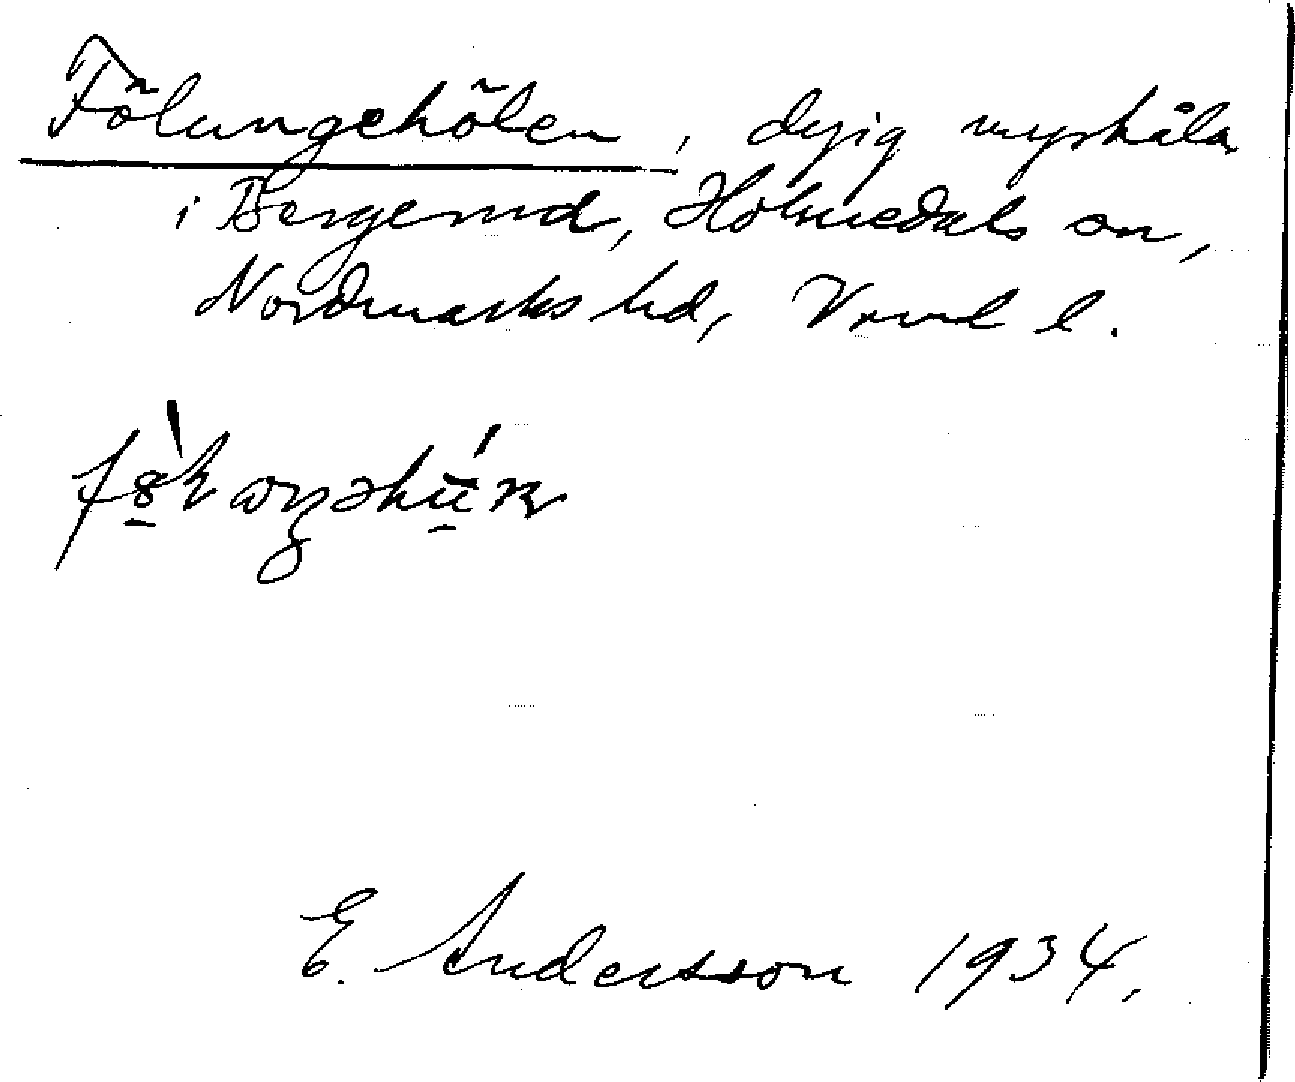 Fölungehölen, dyjig myrhåla
i Bergerud, Holmedals sn,
Nordmarks hd, Vrml l.
E. Andersson 1934.